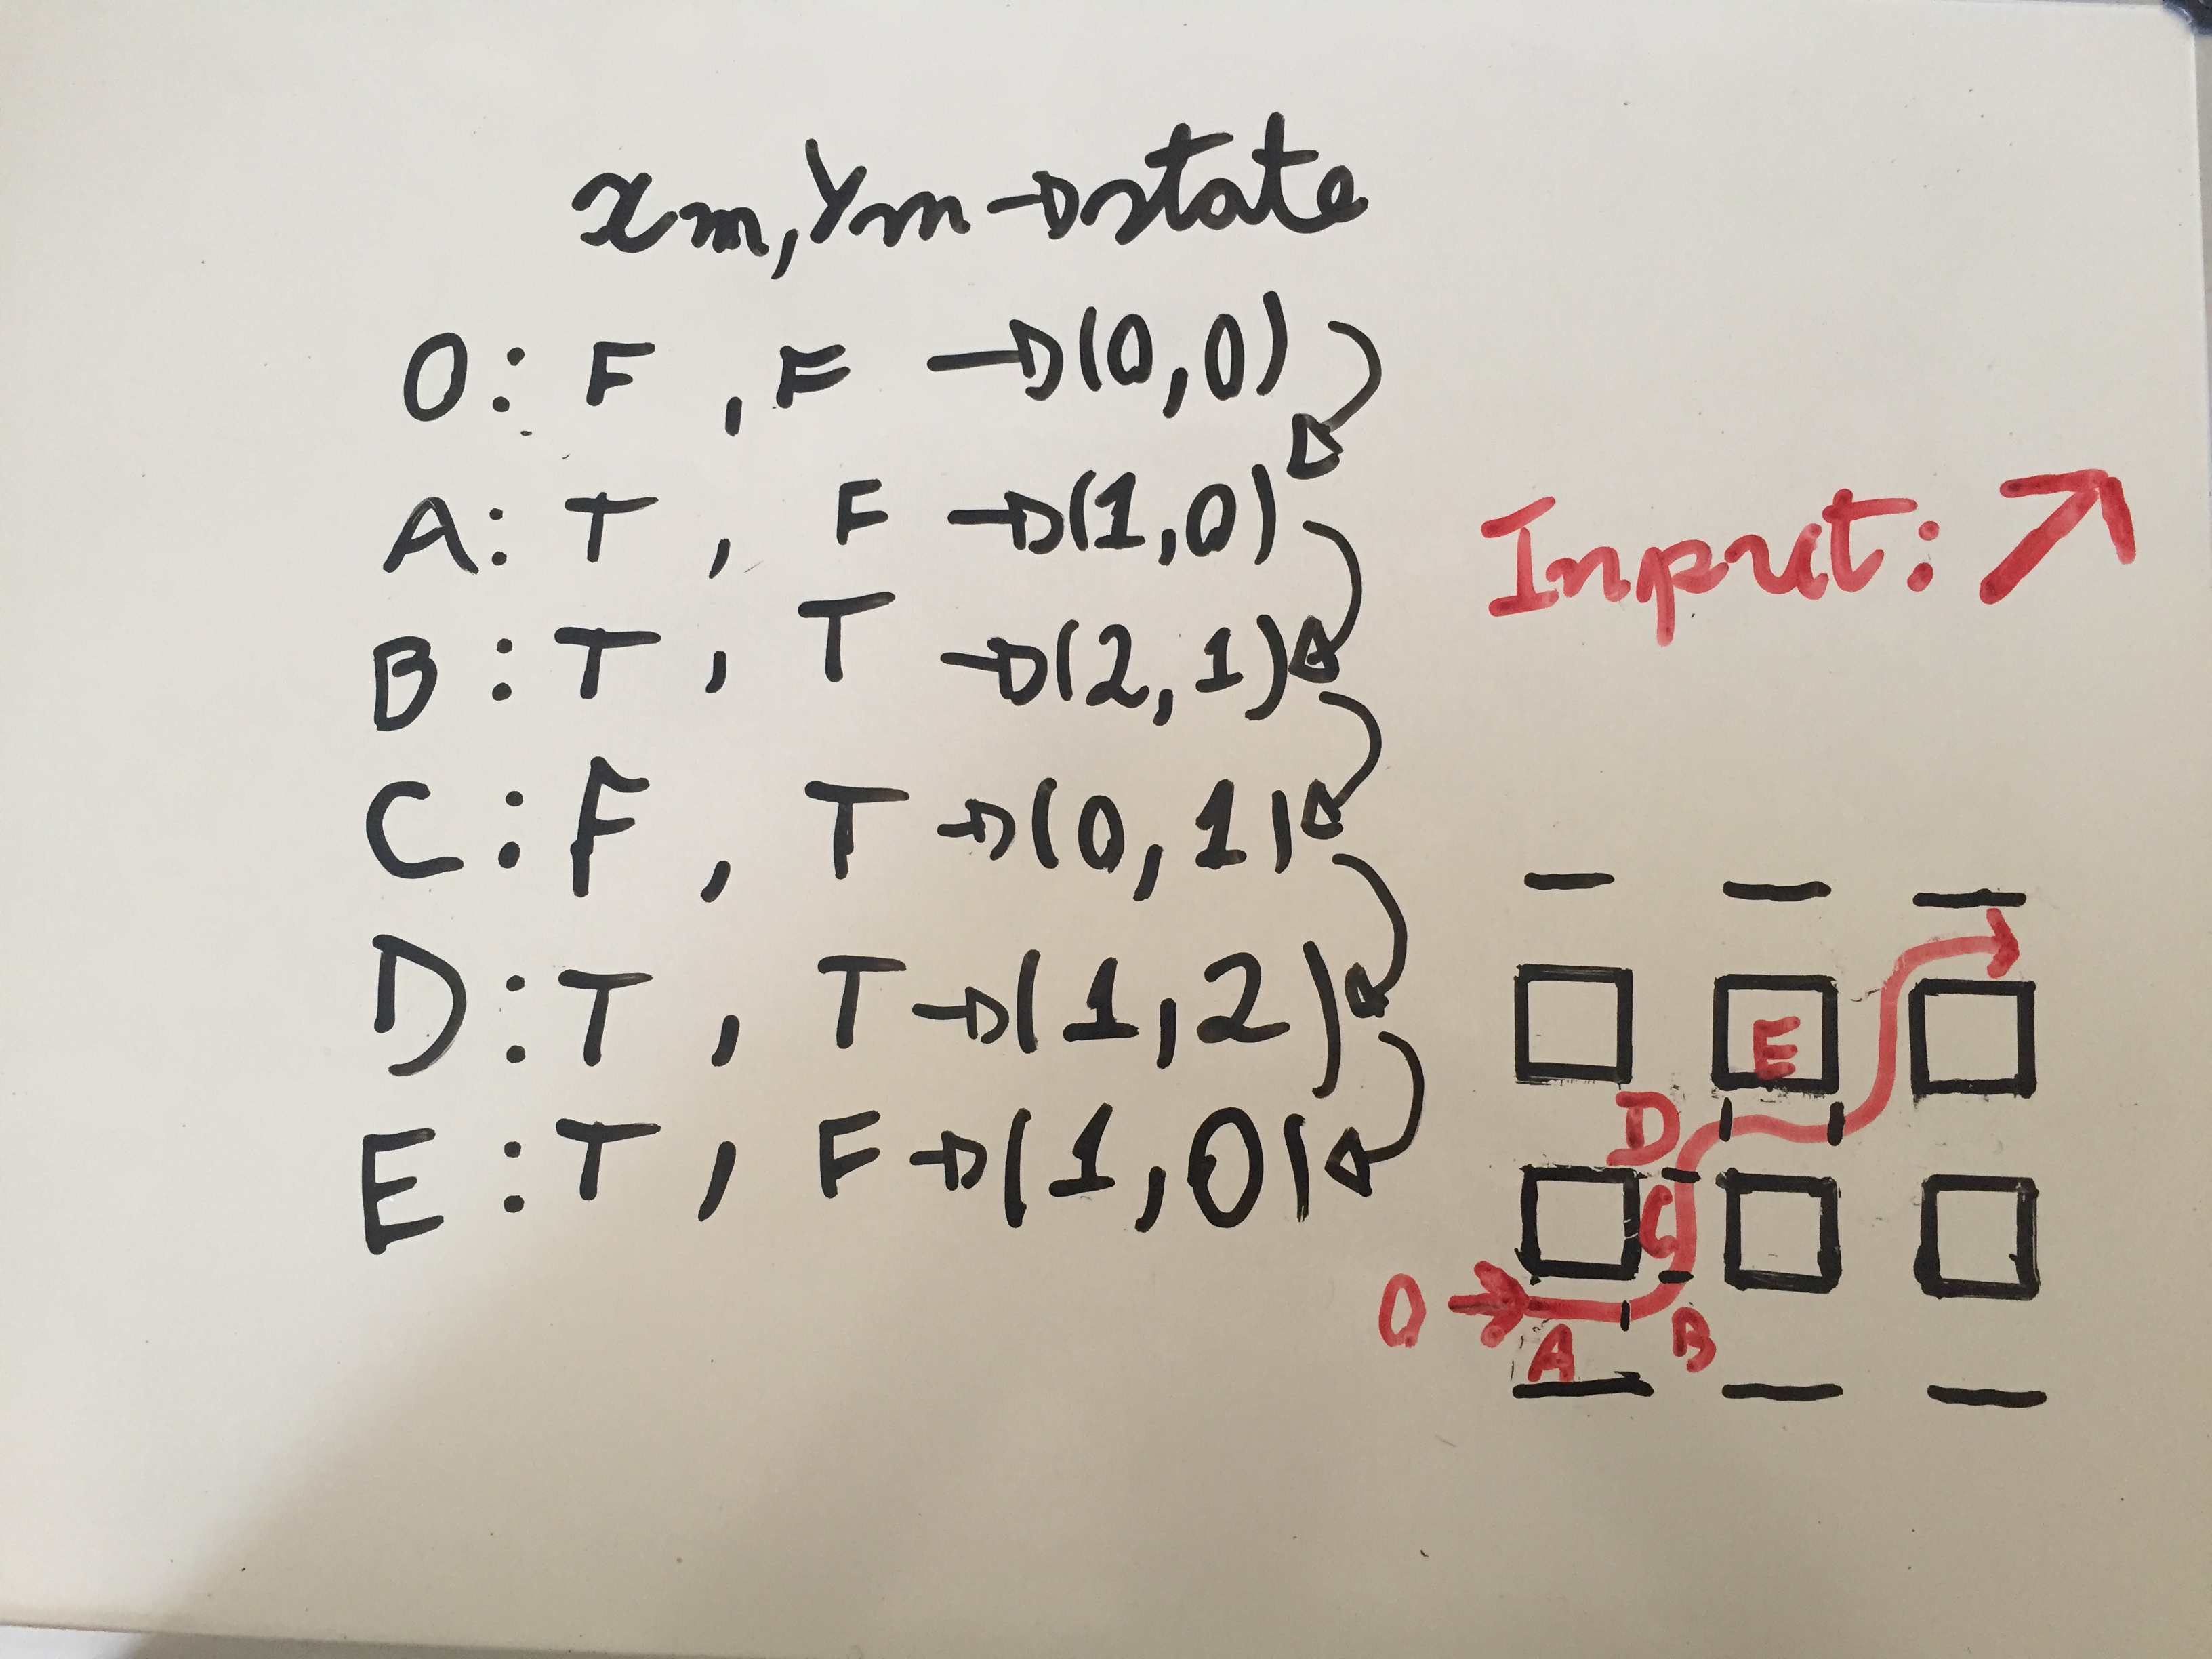 xm, Ym → state
O: F, F → (0,0)
A: T, F → (1,0)
B: T, T → (2,1)
C: F, T → (0,1)
D: T, T → (1,2)
E: T, F → (1,0)
Input: ↗
E
D
C
O
A B